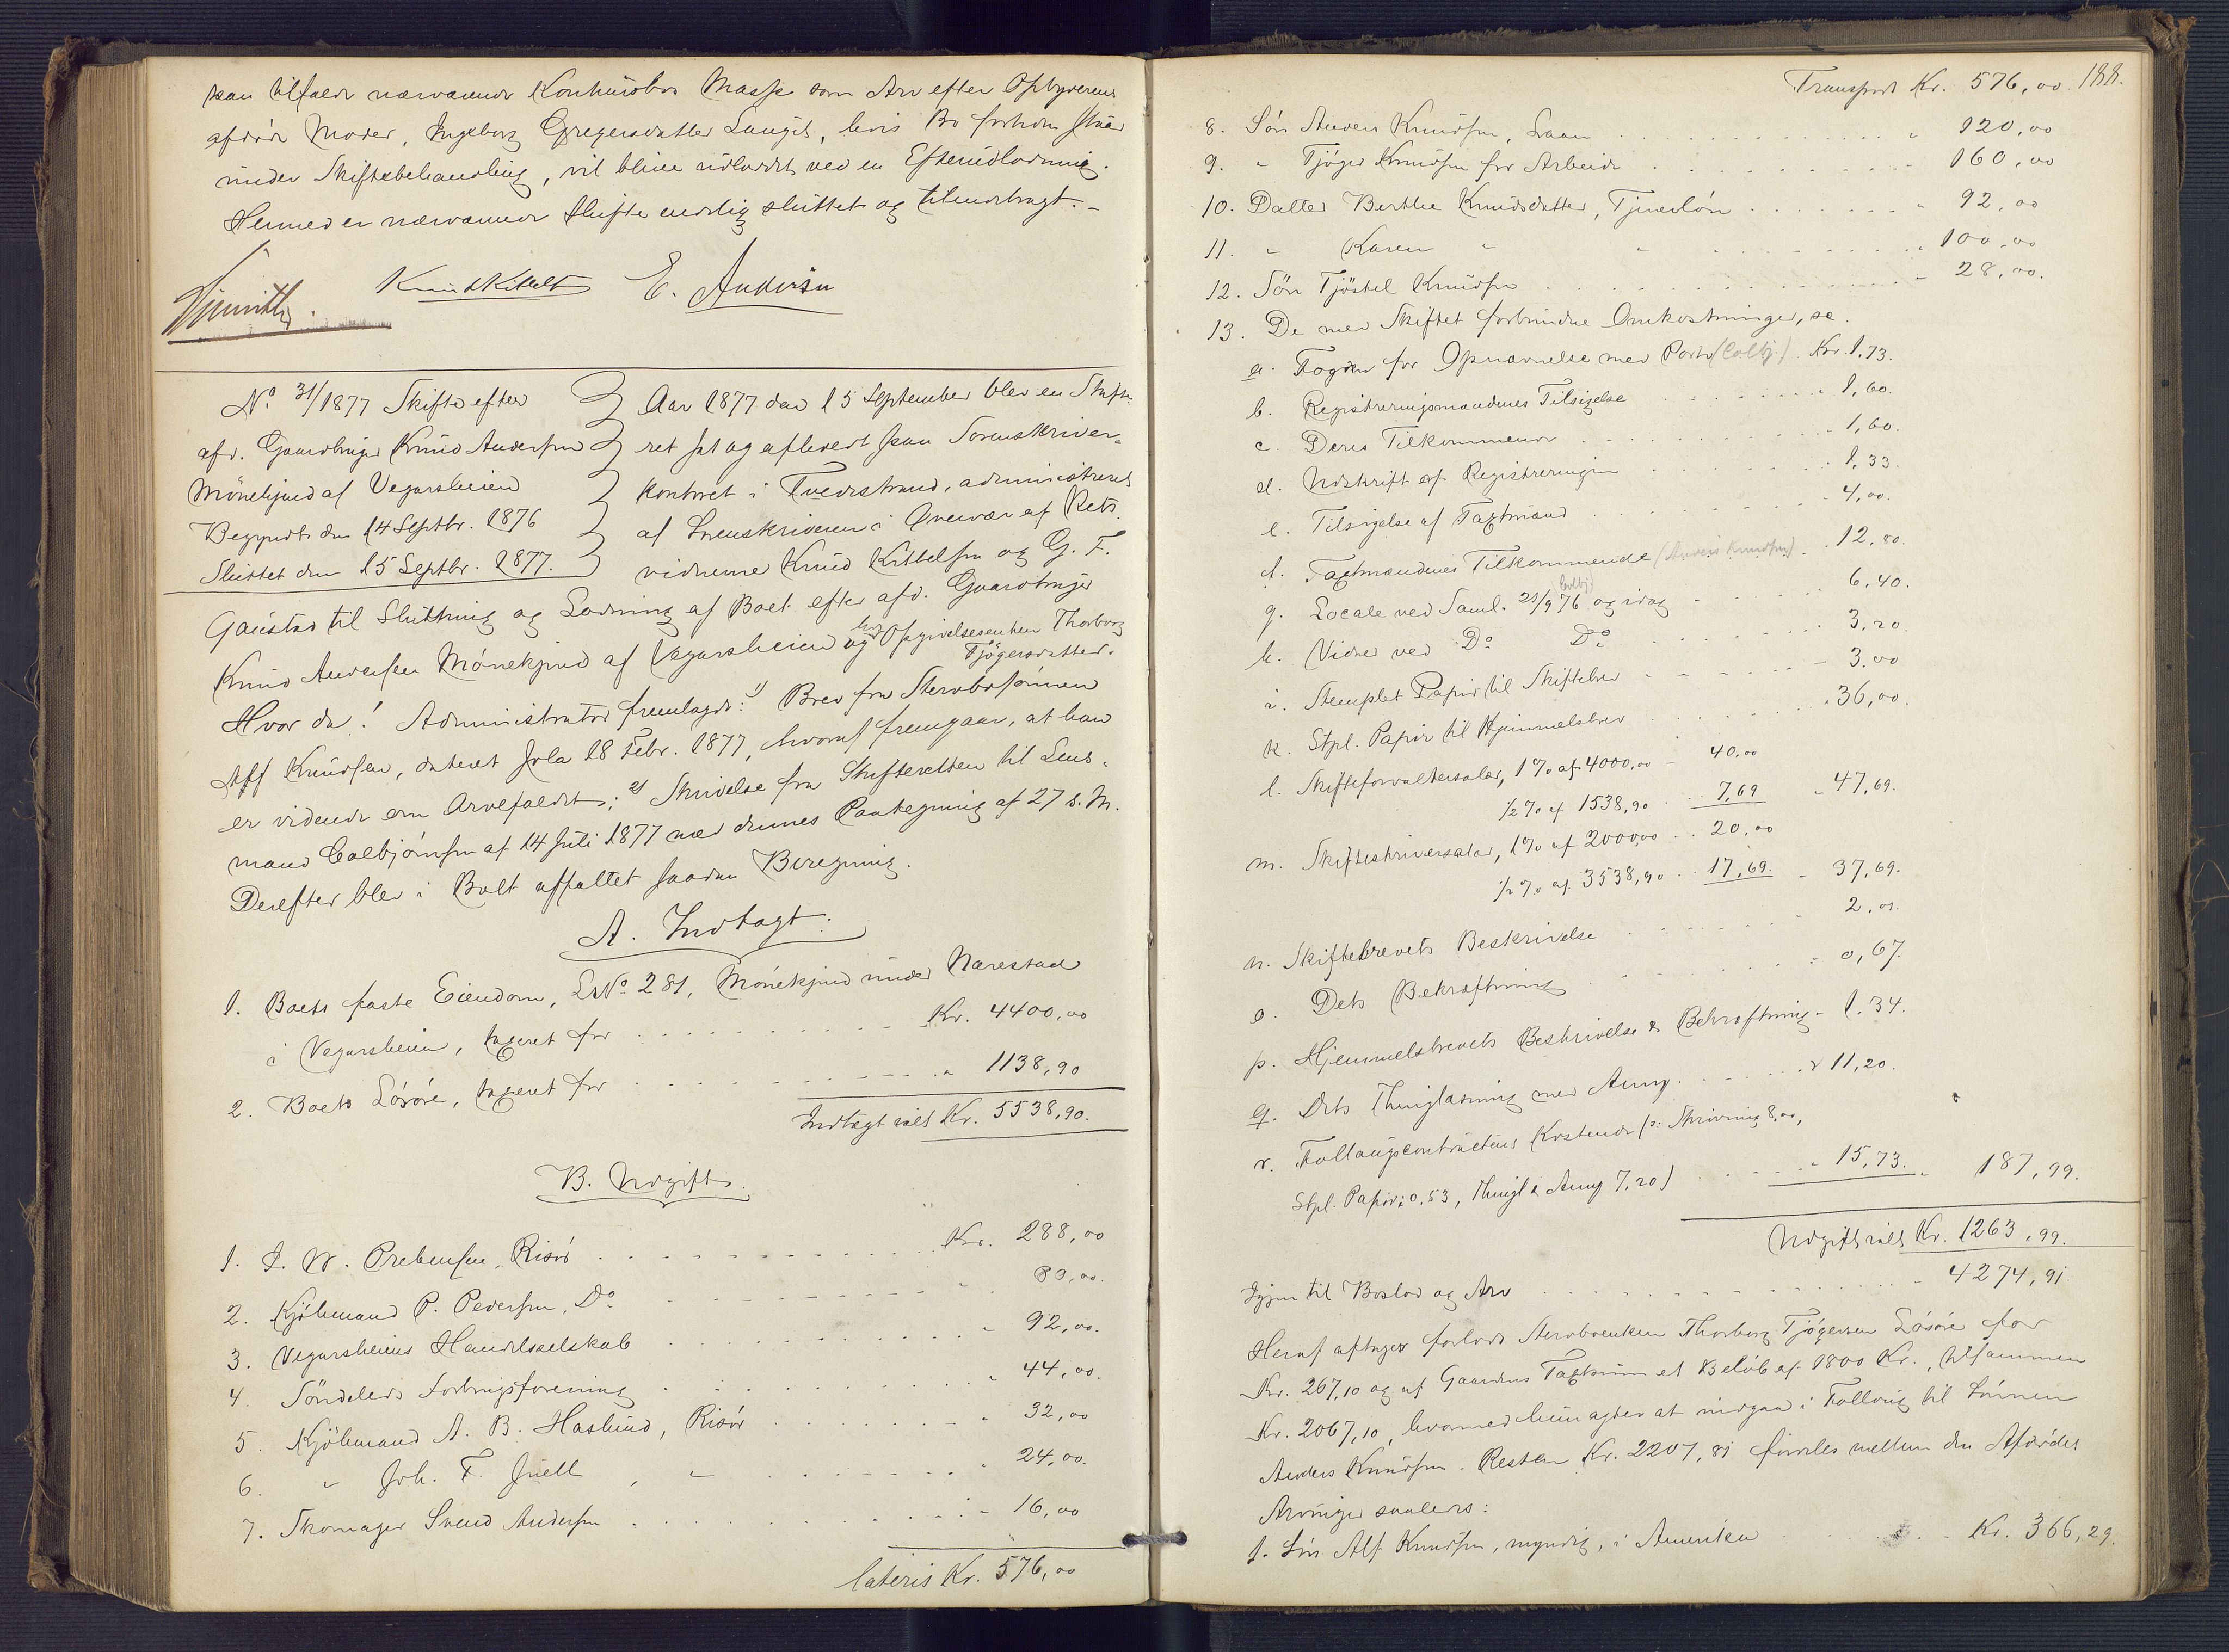 kan tilfalde nærværende Konkursbos Masse som Arv efter Opbyderens
afdøde Moder, Ingeborg Gregersdatter Lauget, hvis Bo forhen staar
under Skiftebehandling, vil blive udloddet ved en Efterudlodning.
Hermed er nærværende Skifte endelig sluttet og tilendebragt. –
Knud Kittelsen E. Andersen
No. 31/1877 Skifte efter
afd. Gaardbruger Knud Andersen
Mönekjend af Vegarsheien
Begyndt den 14 Septbr. 1876
Sluttet den 15 Septbr. 1877.
Aar 1877 den 15 September blev en Skifte-
ret sat og afholdt paa Sorenskriver-
kontoret i Tvedestrand, administreret
af Sorenskriveren i Overvær af Rets-
vidnerne Knud Kittelsen og G. F.
Gaustad til Slutning og Lodning af Boet efter afd. Gaardbruger
Knud Andersen Mönekjend af Vegarsheien og hos Opgivelsesenken Thorborg
Tjögersdatter.
Hvor da! Administrator fremlagde: 1) Brev fra Stervbosønnen
Alf Knudsen, dateret Jola 18 Febr. 1877, hvoraf fremgaar, at han
er vidende om Arvefaldet; 2) Skrivelse fra Skifteretten til Lens-
mand Colbjörnsen af 14 Juli 1877 med dennes Paategning af 27 s. M.
Derefter blev i Boet affattet saadan Beregning.
A. Indtægt:
1. Boets faste Eiendom, LNo. 281, Mönekjend under Nærestad
i Vegarsheien, taxeret for . . . Kr. 4400,00
2. Boets Lösöre, taxeret for . . . " 1138,90
Indtægt ialt Kr. 5538,90.
B. Udgift.
1. I. W. Prebensen, Risör . . . Kr. 288,00
2. Kjöbmand P. Pedersen, Do . . . " 80,00.
3. Vegarsheiens Handelsselskab . . . " 92,00.
4. Söndeleds Forbrugsforening . . . " 44,00.
5. Kjöbmand A. B. Haslund, Risör . . . " 32,00
6. " Joh. F. Juell , " . . . " 24,00.
7. Skomager Svend Andersen . . . " 16,00
lateris Kr. 576,00
188.
Transport Kr. 576,00
8. Sön Anders Knudsen, Laan . . . " 120,00
9. " Tjöger Knudsen for Arbeide . . . " 160,00
10. Datter Berthe Knudsdatter, Tjenerlön . . . " 92,00
11. " Karen " " . . . " 100,00
12. Sön Tjöstel Knudsen . . . " 28,00.
13. De med Skiftet forbundne Omkostninger, sc.
a. Fogden for Opnævnelse med Porto (Colbj.) . Kr. 1,73.
b. Registreringsmændenes Tilsigelse . . . " 1,60.
c. Deres Tilkommende . . . " 1,60.
d. Udskrift af Registreringen . . . " 1,33.
e. Tilsigelse af Taxtmænd . . . " 4,00.
f. Taxtmændenes Tilkommende (Anders Knudsen) . " 12,80.
g. Locale ved Saml. 21/9 76 (Colbj) og idag . . . " 6,40.
h. Vidner ved Do Do . . . " 3,20.
i. Stemplet Papir til Skiftebrev . . . " 3,00
k. Stpl. Papir til Hjemmelsbrev . . . " 36,00.
l. Skifteforvaltersalær, 1% af 4000,00 – 40,00
1/2% af 1538,90 . . 7,69 " 47,69.
m. Skifteskriversalær, 1% af 2000,00 . . 20,00
1/2% af 3538,90 . . 17,69. " 37,69.
n. Skiftebrevets Beskrivelse . . . " 2,00.
o. Dets Bekræftning . . . " 0,67.
p. Hjemmelsbrevets Beskrivelse & Bekræftning – 1.34.
q. Dets Thinglæsning med Anmg. . . . " 11,20.
r. Follaugscontractens Kostende (s: Skrivning 8,00,
Stpl. Papir: 0,53, Thingl & Anmg 7,20) . . . " 15,73. " 187,99.
Udgift ialt Kr. 1263,99.
Igjen til Boslod og Arv . . . " 4274,91.
Heraf aftager forlods Stervboenken Thorborg Tjögersen Lösöre for
Kr. 267,10 og af Gaardens Taxtsum et Belöb af 1800 Kr., tilsammen
Kr. 2067,10, hvormed hun agter at indgaa i Follaug til Sönnen
Anders Knudsen. Resten Kr. 2207,81 fordeles mellem den Afdödes
Arvinger saaledes:
1. Sön Alf Knudsen, myndig, i Amerika . . . Kr. 366,29.